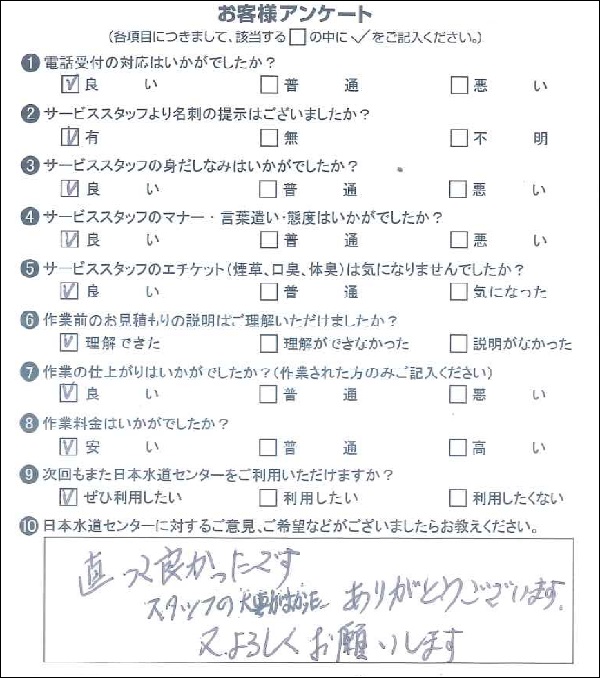 お客様アンケート
(各項目につきまして、該当する□の中に✓をご記入ください。)
❶電話受付の対応はいかがでしたか?
☑良い □普通 □悪い
❷サービススタッフより名刺の提示はございましたか?
☑有 □無 □不明
❸サービススタッフの身だしなみはいかがでしたか?
☑良い □普通 □悪い
❹サービススタッフのマナー・言葉遣い・態度はいかがでしたか?
☑良い □普通 □悪い
❺サービススタッフのエチケット(煙草、口臭、体臭)は気になりませんでしたか?
☑良い □普通 □気になった
❻作業前のお見積もりの説明はご理解いただけましたか?
☑理解できた □理解ができなかった □説明がなかった
❼作業の仕上がりはいかがでしたか?(作業された方のみご記入ください)
☑良い □普通 □悪い
❽作業料金はいかがでしたか?
☑安い □普通 □高い
❾次回もまた日本水道センターをご利用いただけますか?
☑ぜひ利用したい □利用したい □利用したくない
❿日本水道センターに対するご意見、ご希望などがございましたらお教えください。
直って良かったです
スタッフの ありがとうございます。
又よろしくお願いします